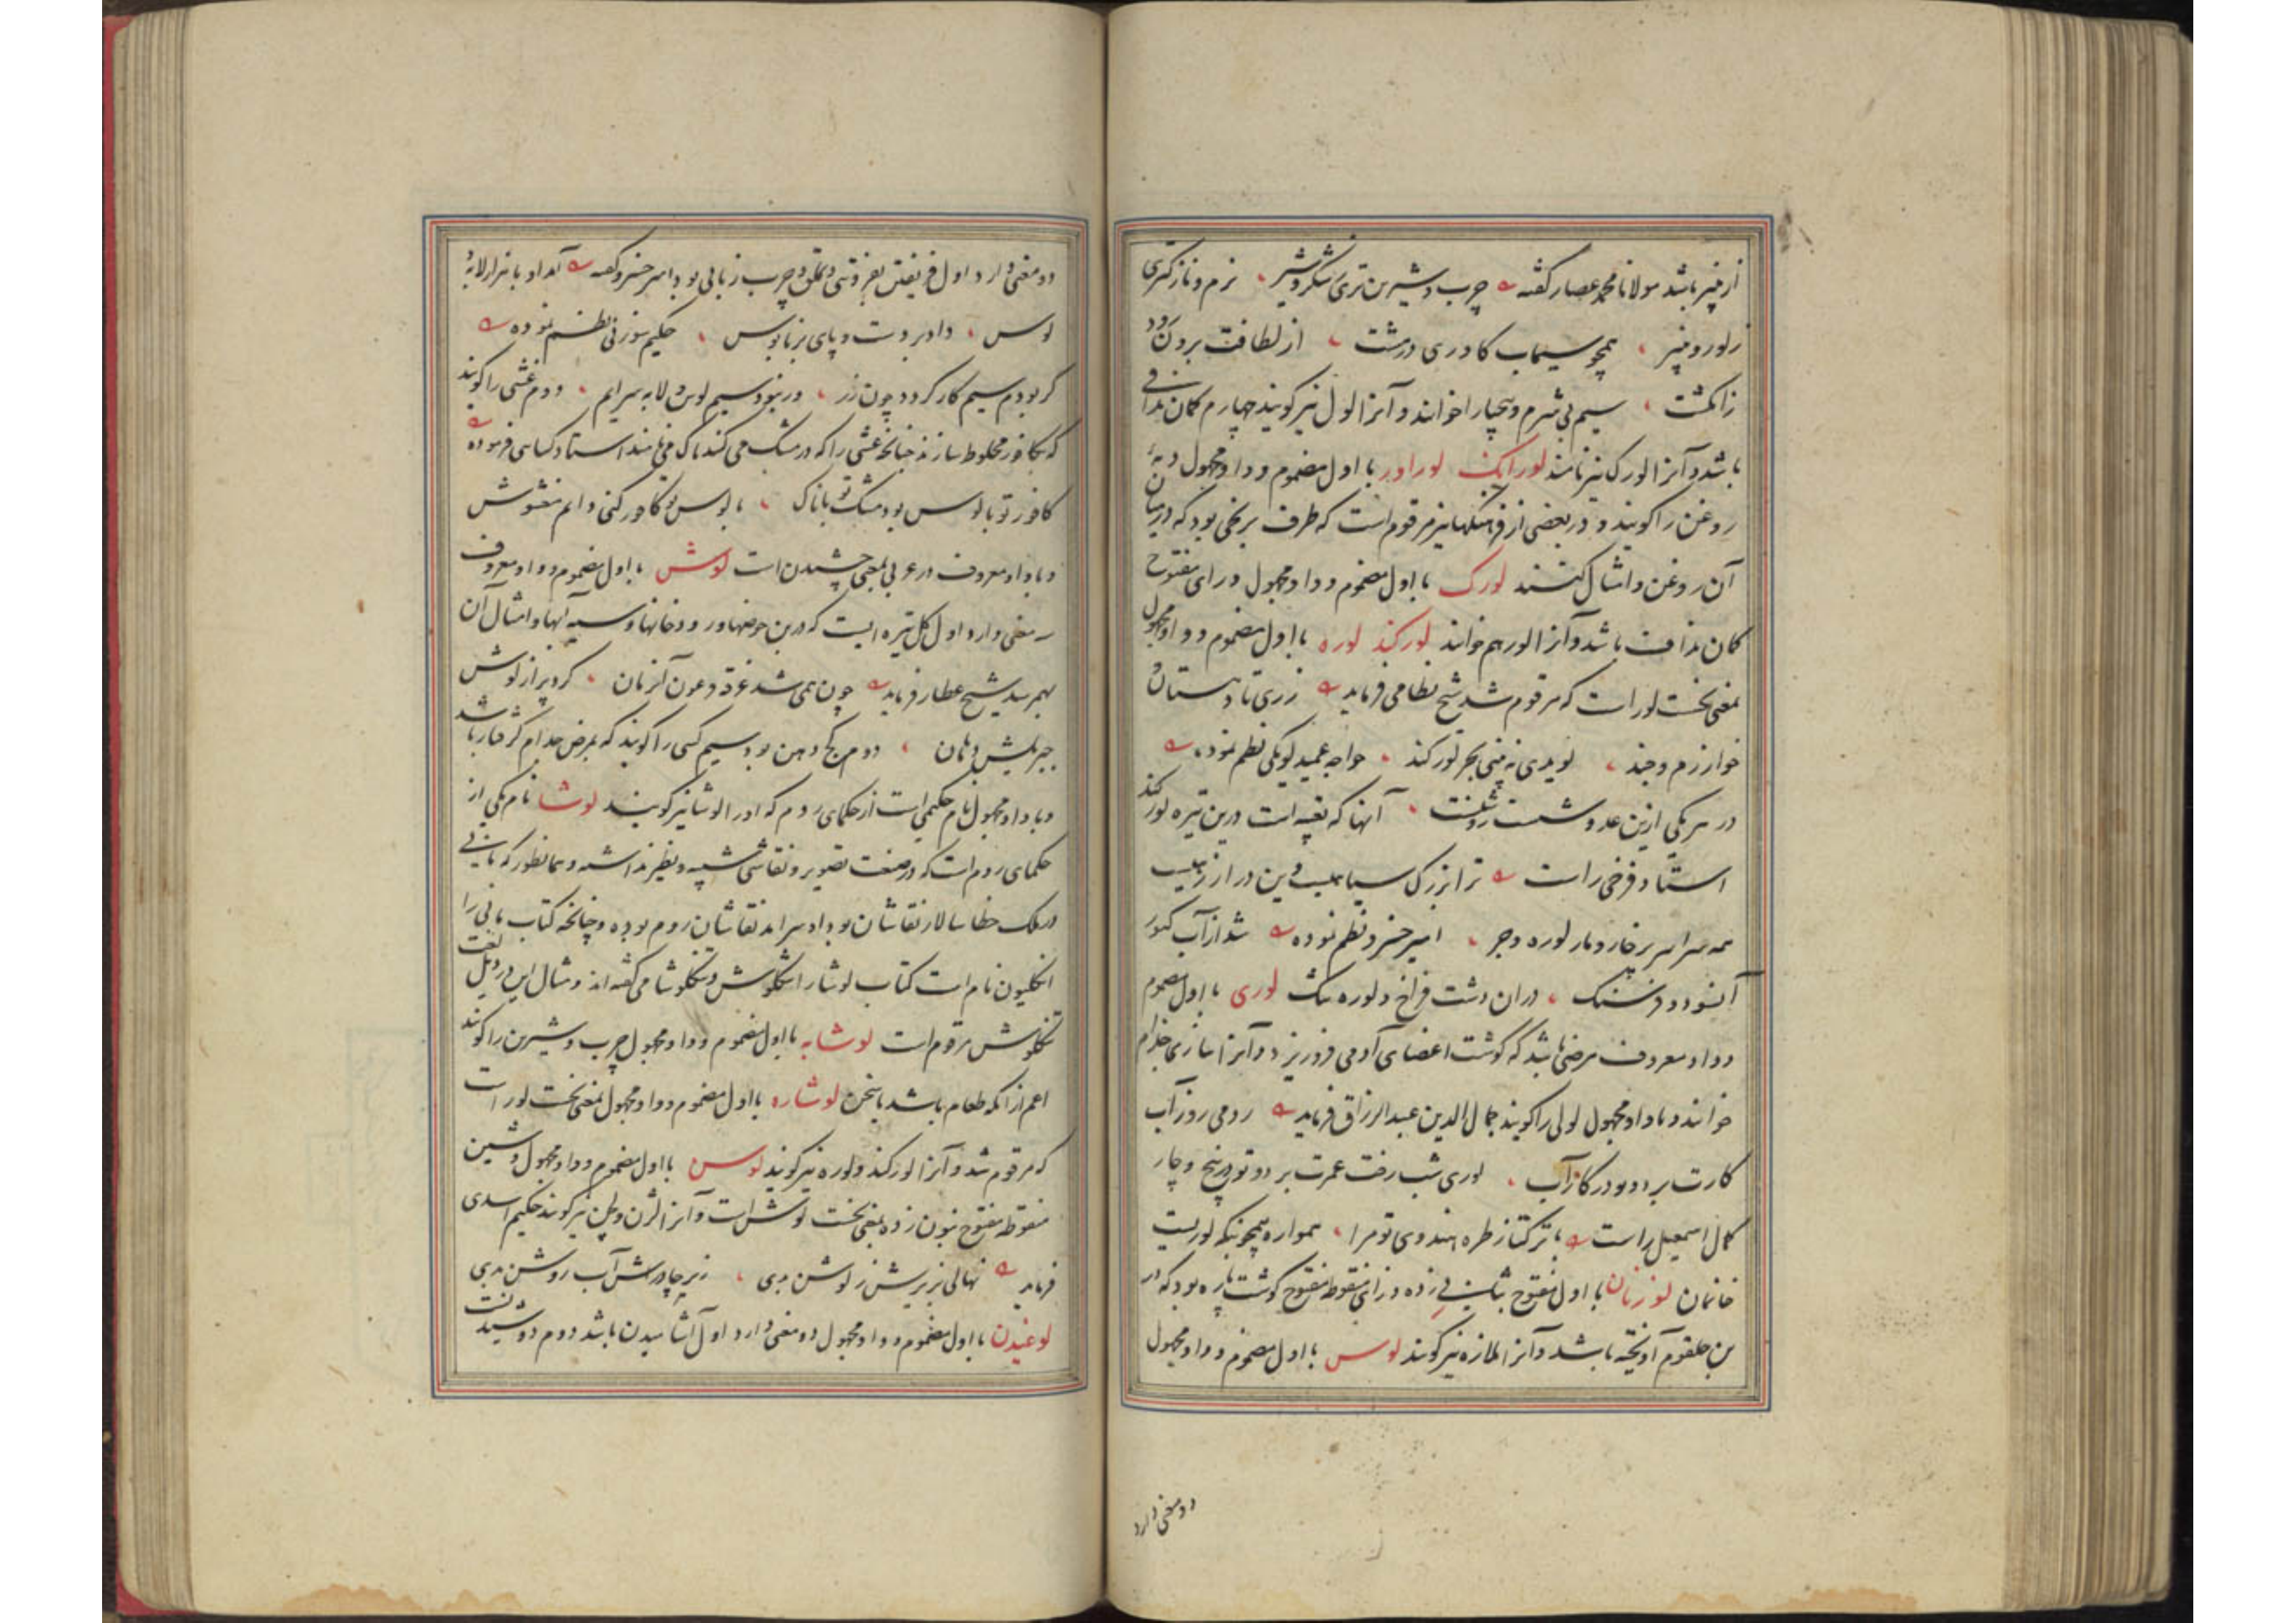 از پنیر باشد مولانا محمد عصار گفته چرب و شیرین تری ز شکر و شیر نرم و نازکتری
ز لور و پنیر همچو سیماب کاوری در مشت از لطافت برون رود
ز انگشت سیم بی شرم و بیحیا را خوانند و آنرا لول نیز گویند چهارم کمان ندافی
باشد و آنرا لورک نیز نامند لورانک لوراور با اول مضموم و واو مجهول دبه
روغن را گویند و در بعضی از فرهنگها نیز مرقوم است که ظرف برنجی بود که در میان
آن روغن و امثال کنند لورک با اول مضموم و واو مجهول و رای مفتوح
کمان ندافت باشد و آنرا لور هم خوانند لورکند لوره با اول مضموم و واو مجهول
بمعنی نخست لور است که مرقوم شد شیخ نظامی فرماید ز ری تا دهستان و
خوارزم و جند نویدی نه بینی بجز لورکند خواجه عمید لویکی نظم نموده
در هر یکی ازین عدو شصت رفت آنها که بقیه است درین تیره لورکند
استاد فرخی راست ترا بزرگ سپاهیست وین دراز رهیست
همه سراسر پر خار و مار لوره و جر امیر خسرو نظم نموده شد از آب کنور
آنسو دو فرسنگ دران دشت فراخ و لوره تنگ لوری با اول مضموم
و واو معروف مرضی باشد که گوشت اعضای آدمی فرو ریزد و آنرا بتازی جذام
خوانند و با واو مجهول لولی را گویند جمال الدین عبد الرزاق فرماید رومی روز آب
کارت برد و تو در کار آب لوری شب رخت عمرت برد و تو در پنج و چار
کمال اسمعیل راست با ترکتاز طره هندوی تو مرا همواره همچو بنکه لوریست
خانمان لوزنان با اول مفتوح بثانی زده و زای منقوطه مفتوح گوشت پاره بود که در
بن حلقوم آویخته باشد و آنرا ملازه نیز گویند لوس با اول مضموم و واو مجهول
دو معنی دارد
دو معنی دارد اول فریفتن بفروتنی و تملق و چرب زبانی بود امیر خسرو گفته آمد او با هزار لابه و
لوس داد بر دست و پای بزنا بوس حکیم سوزنی نظم نموده
گر بودم سیم کار گردد چون زر ور نبود سیم لوس لابه سرایم دوم غشی را گویند
که بکافور مخلوط سازند چنانچه غشی را که در مشک می کنند ناک می نامند استاد کسایی فرموده
کافور تو با لوس بود مشک تو با ناک با لوس تو کافور کنی دایم مغشوش
و با واو معروف در عربی بمعنی چشیدن است لوش با اول مضموم و واو معروف
سه معنی دارد اول گل تیره ایست که در بن حوضها و رودخانها و سیه آبها و امثال آن
بهم رسد شیخ عطار فرماید چون همی شد غرقه فرعون آنزمان کرد پر از لوش
جبرئیلش دهان دوم کج دهن بود سیم کسی را گویند که بمرض جذام گرفتار باشد
و با واو مجهول نام حکیمی است از حکمای روم که او را لوشا نیز گویند لوشا نام یکی از
حکمای روم است که در صنعت تصویر و نقاشی شبیه و نظیر نداشته و همانطور که مانی
در ملک خطا سالار نقاشان بود او سرآمد نقاشان روم بوده و چنانچه کتاب مانی را
انگلیون نام است کتاب لوشا را تنگلوش و تنگلوشا می گفته اند و مثال این در ذیل لغت
تنگلوش مرقوم است لوشابه با اول مضموم و واو مجهول چرب و شیرین را گویند
اعم از آنکه طعام باشد یا سخن لوشاره با اول مضموم و واو مجهول بمعنی نخست لور است
که مرقوم شد و آنرا لورکند و لوره نیز گویند لوسن با اول مضموم و واو مجهول و شین
منقوطه مفتوح بنون زده بمعنی نخست لوش است و آنرا لژن و لجن نیز گویند حکیم اسدی
فرماید نهالی بزیرش ز لوشن بدی زیر چادرش آب روشن بدی
لوغیدن با اول مضموم و واو مجهول دو معنی دارد اول آشامیدن باشد دوم دوشیدنست